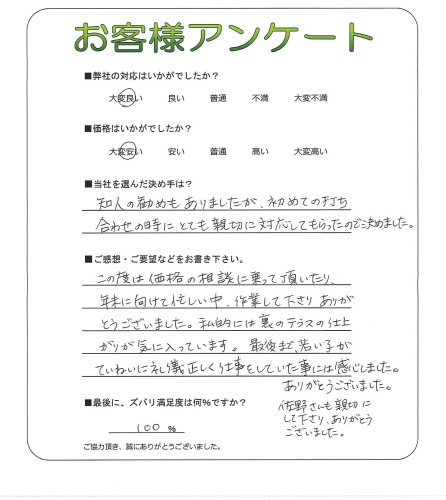 お客様アンケート
■弊社の対応はいかがでしたか？
大変良い　良い　普通　不満　大変不満
■価格はいかがでしたか？
大変安い　安い　普通　高い　大変高い
■当社を選んだ決め手は？
知人の勧めもありましたが、初めての打ち
合わせの時にとても親切に対応してもらったので決めました。
■ご感想・ご要望などをお書き下さい。
この度は価格の相談に乗って頂いたり、
年末に向けて忙しい中、作業して下さりありが
とうございました。私的には裏のテラスの仕上
がりが気に入っています。最後まで、若い子が
ていねいに礼儀正しく仕事をしていた事には感心しました。
ありがとうございました。
佐野さんも親切に
して下さり、ありがとう
ございました。
■最後に、ズバリ満足度は何%ですか？
100 %
ご協力頂き、誠にありがとうございました。